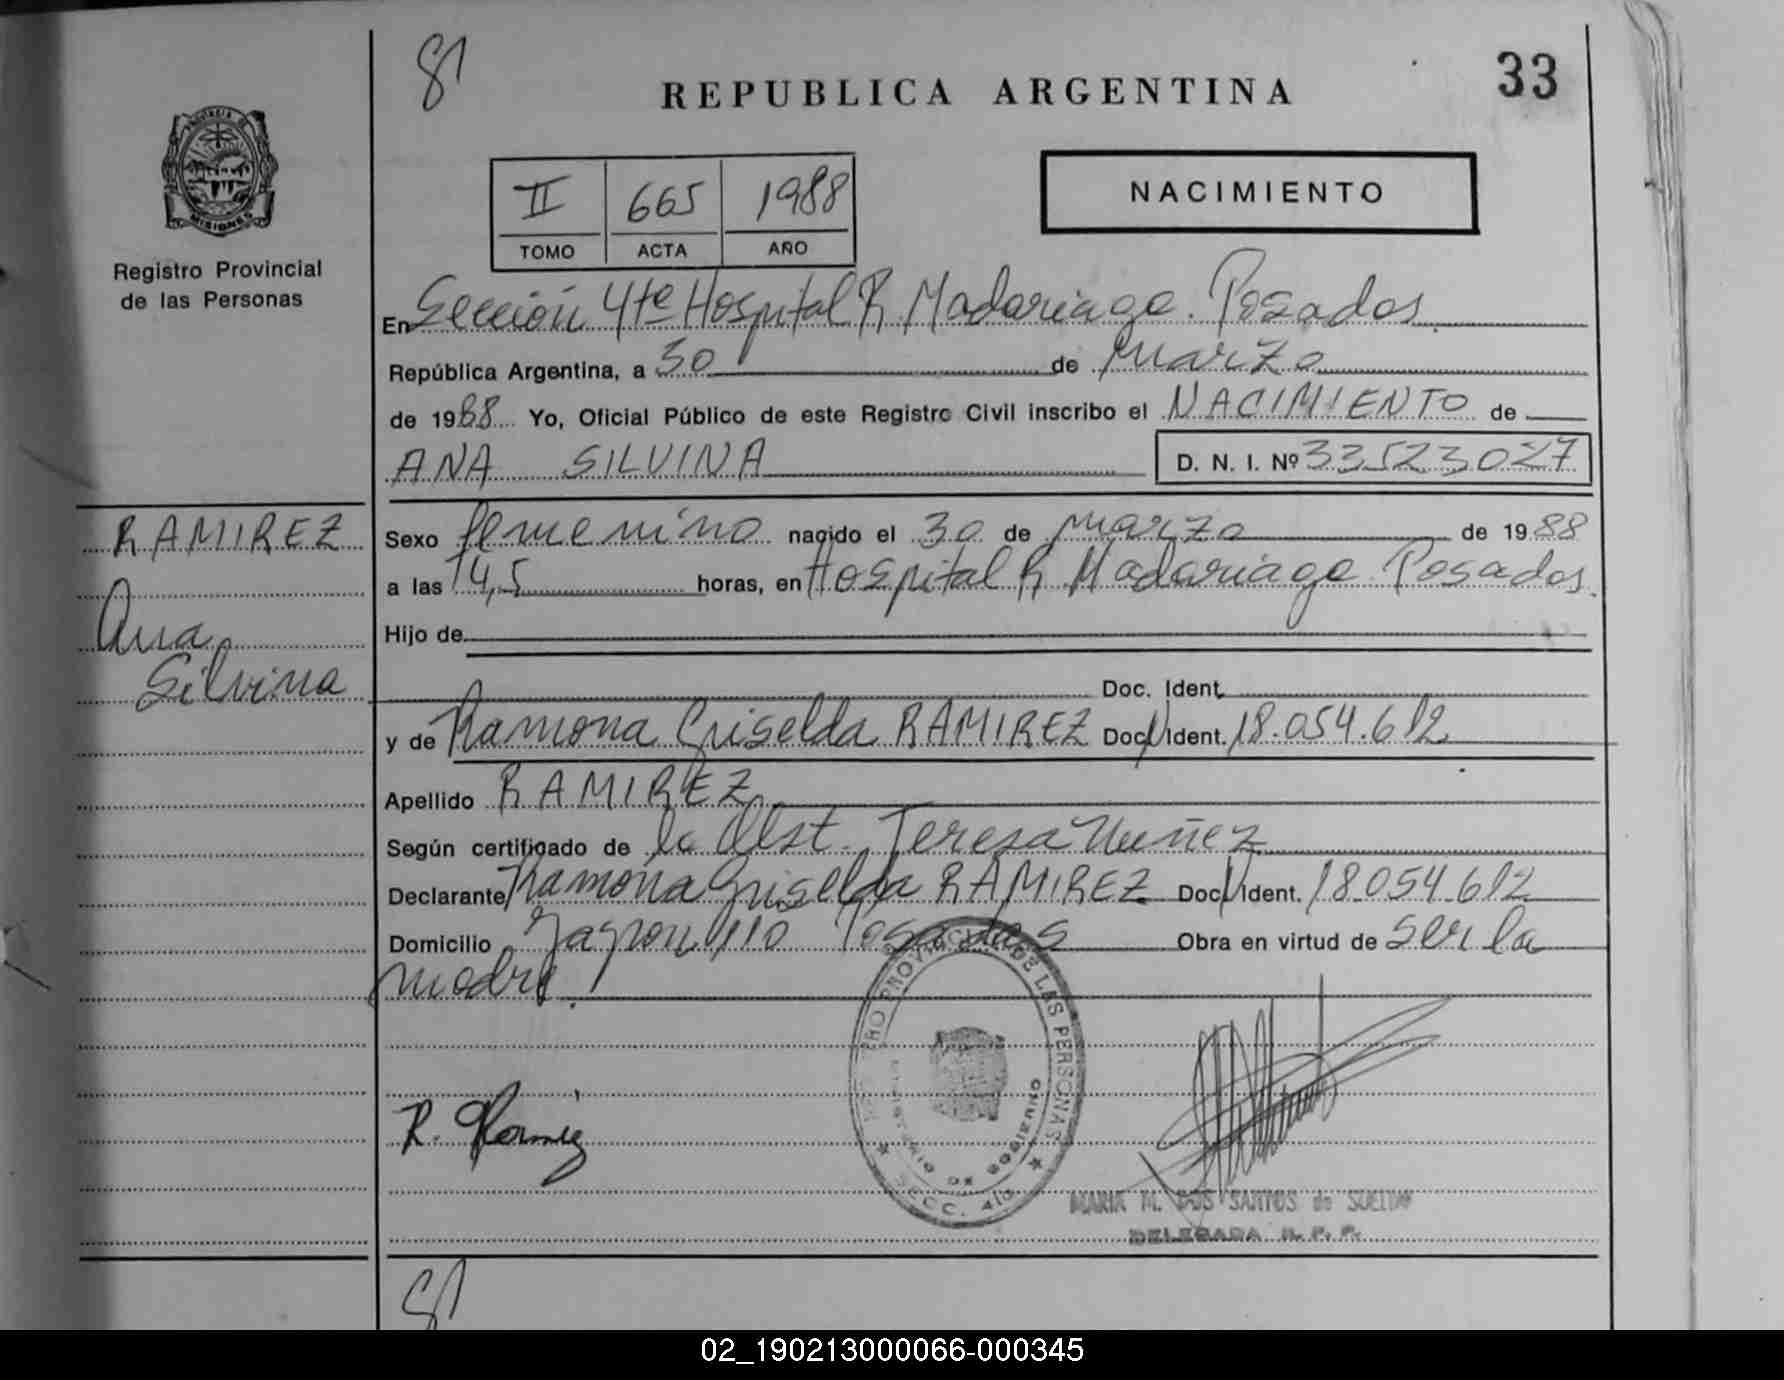 81
REPUBLICA ARGENTINA
33
PROVINCIA DE
MISIONES
Registro Provincial
de las Personas
II 665 1988
TOMO ACTA AÑO
NACIMIENTO
En Sección 4ta Hospital R Madariaga. Posadas.
República Argentina, a 30 de marzo
de 1988 Yo, Oficial Público de este Registro Civil inscribo el NACIMIENTO de
ANA SILVINA D. N. I. Nº 33523027
RAMIREZ
Ana
Silvina
Sexo femenino nacido el 30 de marzo de 1988
a las 14,5 horas, en Hospital R Madariaga Posadas.
Hijo de
Doc. Ident.
y de Ramona Griselda RAMIREZ Doc. Ident. 18.054.612
Apellido RAMIREZ
Según certificado de la Obst. Teresa Nuñez
Declarante Ramona Griselda RAMIREZ Doc. Ident. 18.054.612
Domicilio 110 Posadas Obra en virtud de ser la
madre.
PROVINCIAL DE LAS PERSONAS
MINISTERIO DE GOBIERNO
SECC. 4ta
R. Ramirez
MARIA M. DOS SANTOS de
DELEGADA R. P. P.
81
02_190213000066-000345